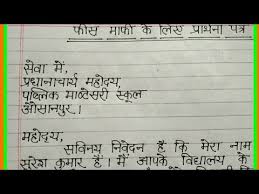 फीस माफी के लिए प्रार्थना पत्र
सेवा में,
प्रधानाचार्य महोदय,
पब्लिक माण्टेसरी स्कूल
ओसानपुर।
महोदय,
सविनय निवेदन है कि मेरा नाम
सुरेश कुमार है। मैं आपके विद्यालय के